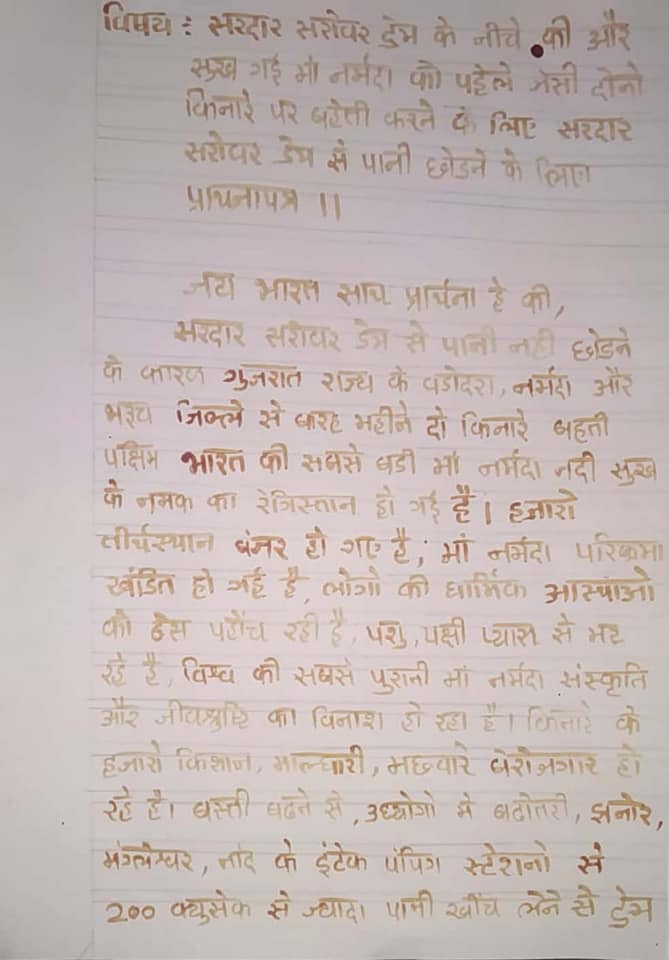 विषय : सरदार सरोवर डेम के नीचे की और
सुख गई माँ नर्मदा को पहेले जेसी दोनो
किनारे पर बहेती करने के लिए सरदार
सरोवर डेम से पानी छोडने के लिए
प्राथनापत्र ।।
जय भारत साथ प्रार्थना है की,
सरदार सरोवर डेम से पानी नही छोडने
के कारण गुजरात राज्य के वडोदरा, नर्मदा और
भरुच जिल्ले से बारह महीने दो किनारे बहती
पश्चिम भारत की सबसे बडी माँ नर्मदा नदी सुख
के नमक का रेगिस्तान हो गई है। हजारो
तीर्थस्थान बंजर हो गए है, माँ नर्मदा परिक्रमा
खंडित हो गई है, लोगो की धार्मिक आस्थाओ
को ठेस पहोंच रही है, पशु, पक्षी प्यास से मर
रहे है, विश्व की सबसे पुरानी माँ नर्मदा संस्कृति
और जीवश्रुष्टि का विनाश हो रहा है। किनारे के
हजारो किशान, माल्धारी, मछवारे बेरोजगार हो
रहे है। बस्ती बढने से, उध्योगो मे बढोतरी, झनोर,
मंगलेश्वर, नांद के इंटेक पंपिग स्टेशनो से
200 क्युसेक से ज्यादा पानी खींच लेने से डेम